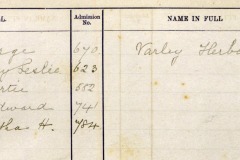 L. Admission No. NAME IN FULL
rge 670 Varley Herb
y Leslie 623
rtie 552
dward 741
tha H. 784